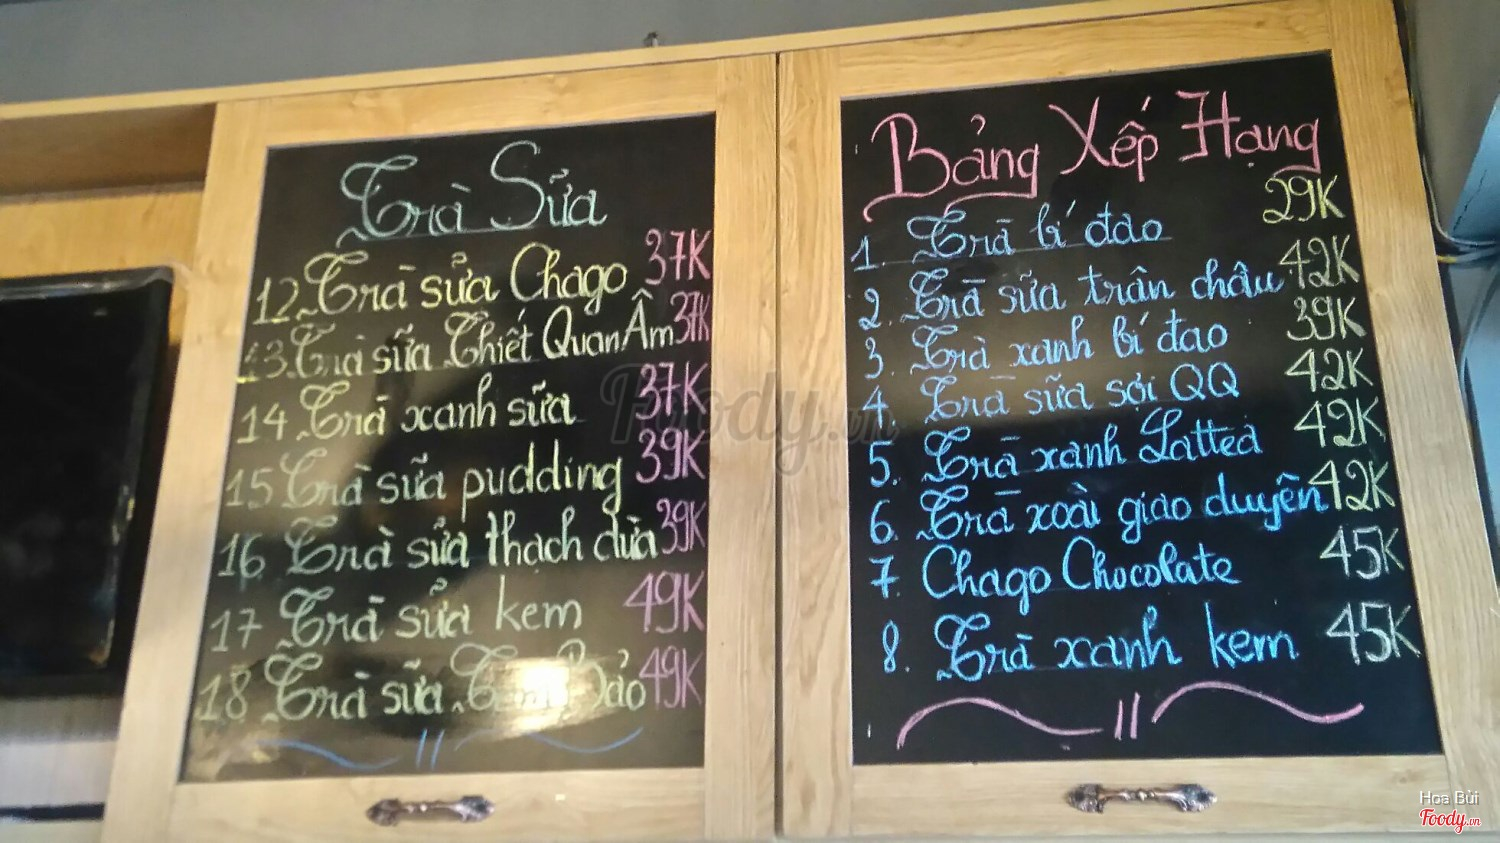 Trà Sữa
12. Trà sữa Chago 37K
13. Trà sữa Thiết Quan Âm 37K
14. Trà xanh sữa 37K
15. Trà sữa pudding 39K
16. Trà sữa thạch dừa 39K
17. Trà sữa kem 49K
18. Trà sữa Bảo 49K
Bảng Xếp Hạng
1. Trà bí đao 29K
2. Trà sữa trân châu 42K
3. Trà xanh bí đao 39K
4. Trà sữa sợi QQ 42K
5. Trà xanh Lattea 42K
6. Trà xoài giao duyên 42K
7. Chago Chocolate 45K
8. Trà xanh kem 45K
Foody.vn
Hoa Bùi
Foody.vn